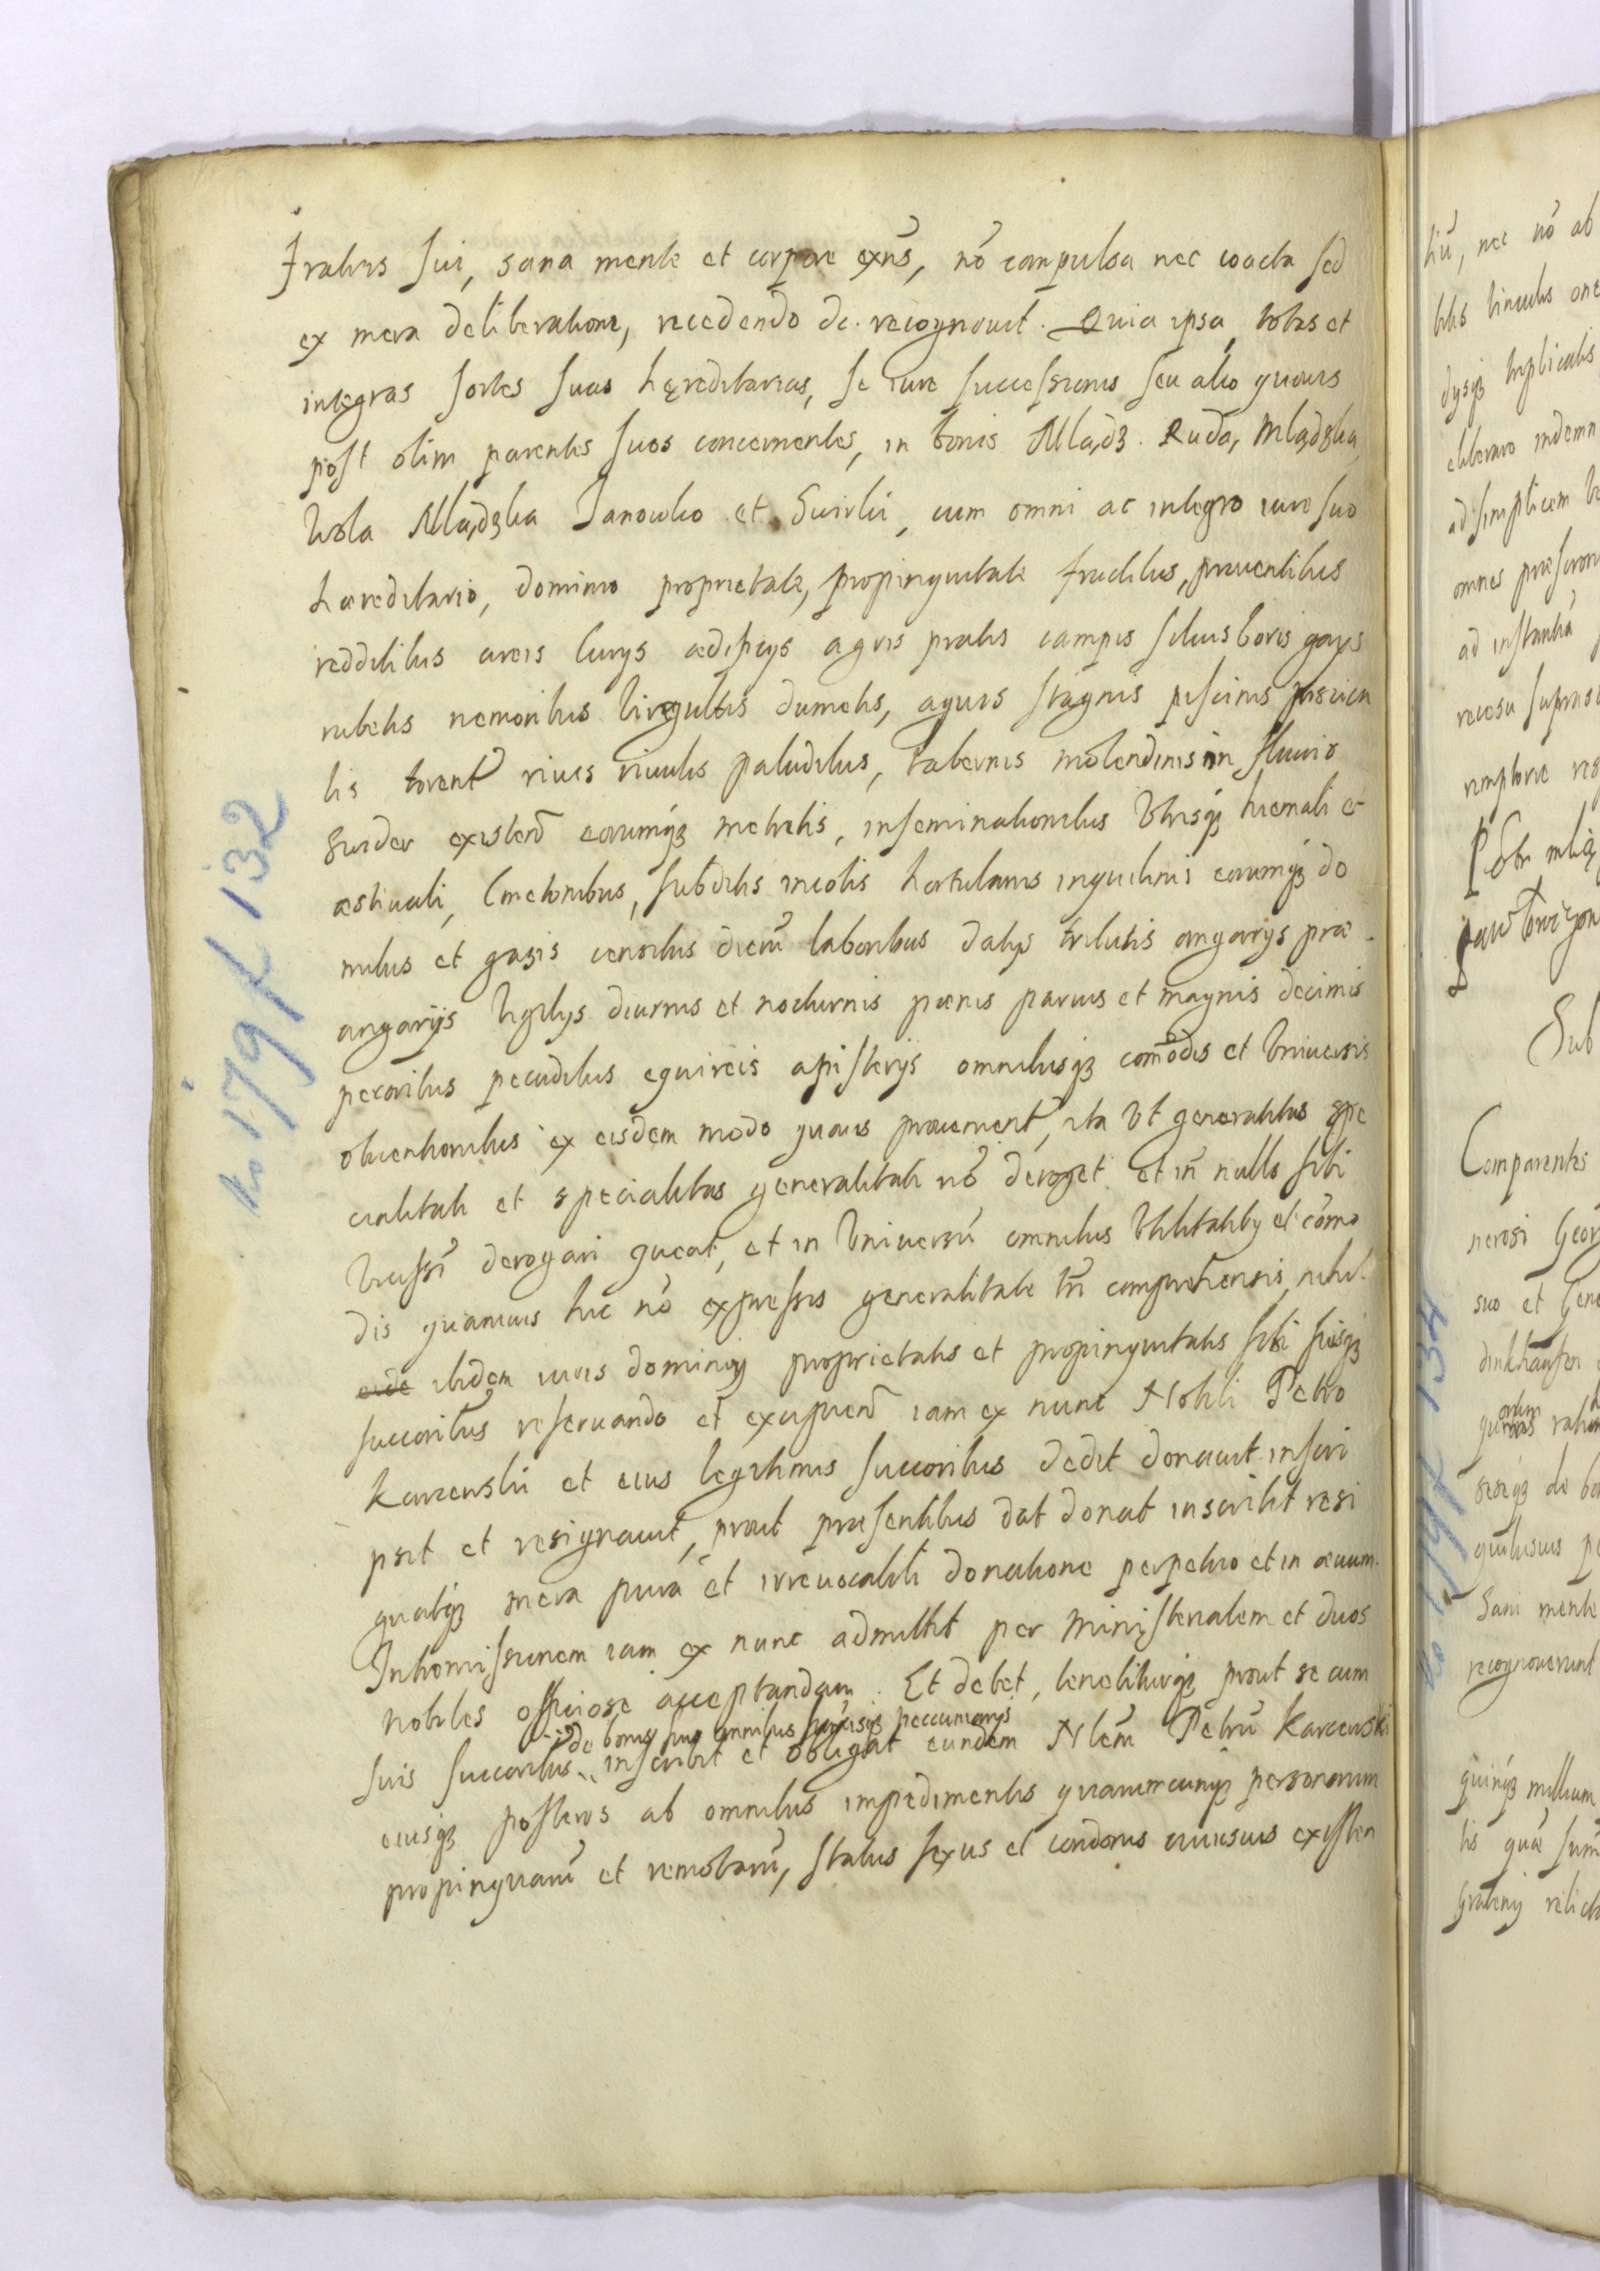 fratris sui, sana mente et corpore exñs, nõ compulsa nec coacta sed
ex mera deliberatione, recedendo de. recognouit. Quia ipsa, totas et
integras sortes suas hęreditarias, se iure successionis seu alio quouis
post olim parentes suos concernentes, in bonis Mlądz. Ruda, Mlądzka
Wola Mlądzka Janowko et Swirki, cum omni ac integro iure suo
hæreditario, dominio proprietate, propinquitate fructibus, prouentibus
redditibus areis curys ædificys agris pratis campis siluis boris gays
rubetis nemoribus virgultis dumetis, aquis stagnis piscinis
lis torent riuis riuulis paludibus, tabernis molendinis in fluuio
Swider existeñ earumqz metretis, inseminationibus vtrisqz hiemali et
æstiuali, cmetonibus, subditis incolis hortulanis inquilinis earumqz do
mibus et gazis censibus dierũ laboribus datys tributis angarys præ
angarÿs vigilys diurnis et nocturnis pœnis paruis et magnis decimis
pecoribus pecudibus equireis apisterys omnibusqz com̃odis et vniuersis
obuentionibus ex eisdem modo quouis prouenient, ita vt generalitas spe
cialitati et specialitas generalitati nõ deroget et in nullo sibi
vicissĩ derogari queat, et in vniuersũ omnibus vtilitatibus et cõmo
dis quamuis hic nõ expressis generalitate tñ comprehensis, nihil
ibidem iuris dominij proprietatis et propinquitatis sibi suisqz
succoribus reseruando et excipienď iam ex nunc Nobili Petro
Karcewski et eius legitimis succoribus dedit donauit inscri
psit et resignauit, prout præsentibus dat donat inscribit resi
gnatqz mera pura et irreuocabili donatione perpetuo et in æuum.
Intromissionem iam ex nunc admittit per ministerialem et duos
nobiles officiose acceptandam. Et debet, tenebiturqz prout se cum
de bonis suis omnibus pecuniarys
suis succoribus inscribit et obligat eundem Nlẽm Petrũ Karcewski
eiusqz posteros ab omnibus impedimentis quarumcunqz personarum
propinquarũ et remotarũ, status sexus et condonis cuiusuis existen
No 179 f 132
tiũ, nec nõ ab
ad simplicem
ad instantiã
Sub
Comparentes
nerosi Geor
suo et Gene
Sani mente
recognouerunt
quinqz millium
tis quæ sum
No 179 f 134